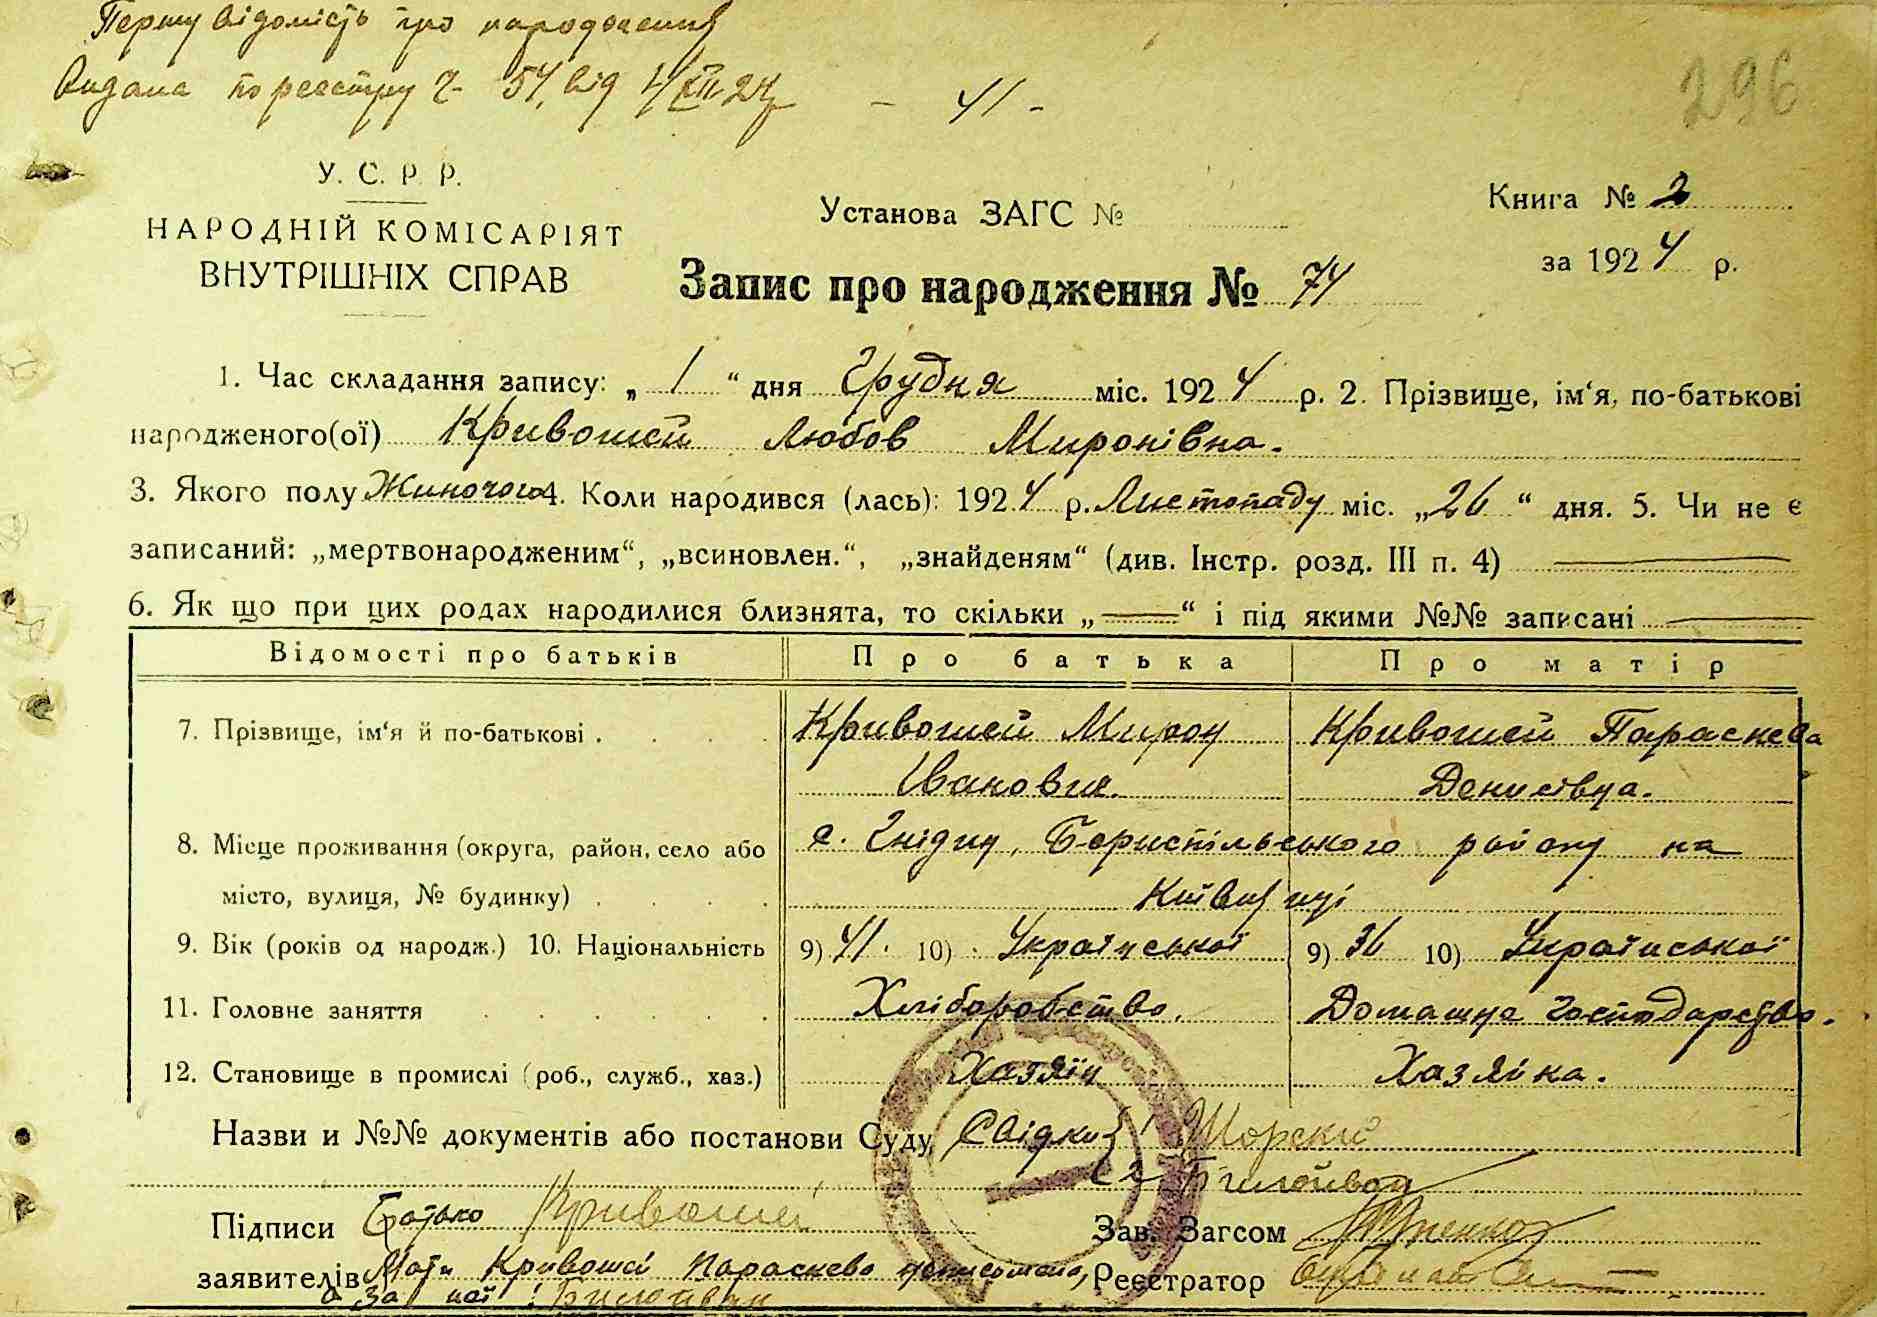 Першу відомість про народження
Видана по реєстру Ч- 54, від 4/XII 24
- 41 -
296
У. С. Р. Р.
НАРОДНІЙ КОМІСАРІЯТ
ВНУТРІШНІХ СПРАВ
Установа ЗАГС №
Книга № 2
за 1924 р.
Запис про народження № 74
1. Час складання запису: „ 1 “ дня Грудня міс. 1924 р. 2. Прізвище, ім‘я, по-батькові
народженого(ої) Кривошей Любов Миронівна.
3. Якого полу Жиночого 4. Коли народився (лась): 1924 р. Листопаду міс. „26“ дня. 5. Чи не є
записаний: „мертвонародженим“, „всиновлен.“, „знайденям“ (див. Інстр. розд. III п. 4) ———
6. Як що при цих родах народилися близнята, то скільки „——“ і під якими №№ записані ———
Відомості про батьків Про батька Про матір
7. Прізвище, ім‘я й по-батькові . . . . Кривошей Мирон Кривошей Параскева
Іванович. Денисівна.
8. Місце проживання (округа, район, село або с. Гнідин, Бориспільського району на
місто, вулиця, № будинку) . . . . Київщині
9. Вік (років од народж.) 10. Національність 9) 41. 10) Української 9) 36 10) Української
11. Головне заняття . . . . . . Хліборобство. Домашнє господарство.
12. Становище в промислі (роб., служб., хаз.) Хазяїн Хазяйка.
Назви и №№ документів або постанови Суду, Свідки 1
2
Підписи Батько Кривошей Зав. Загсом
заявителів Мати Кривошей Параскева неписьмена, Реєстратор
а за неї :